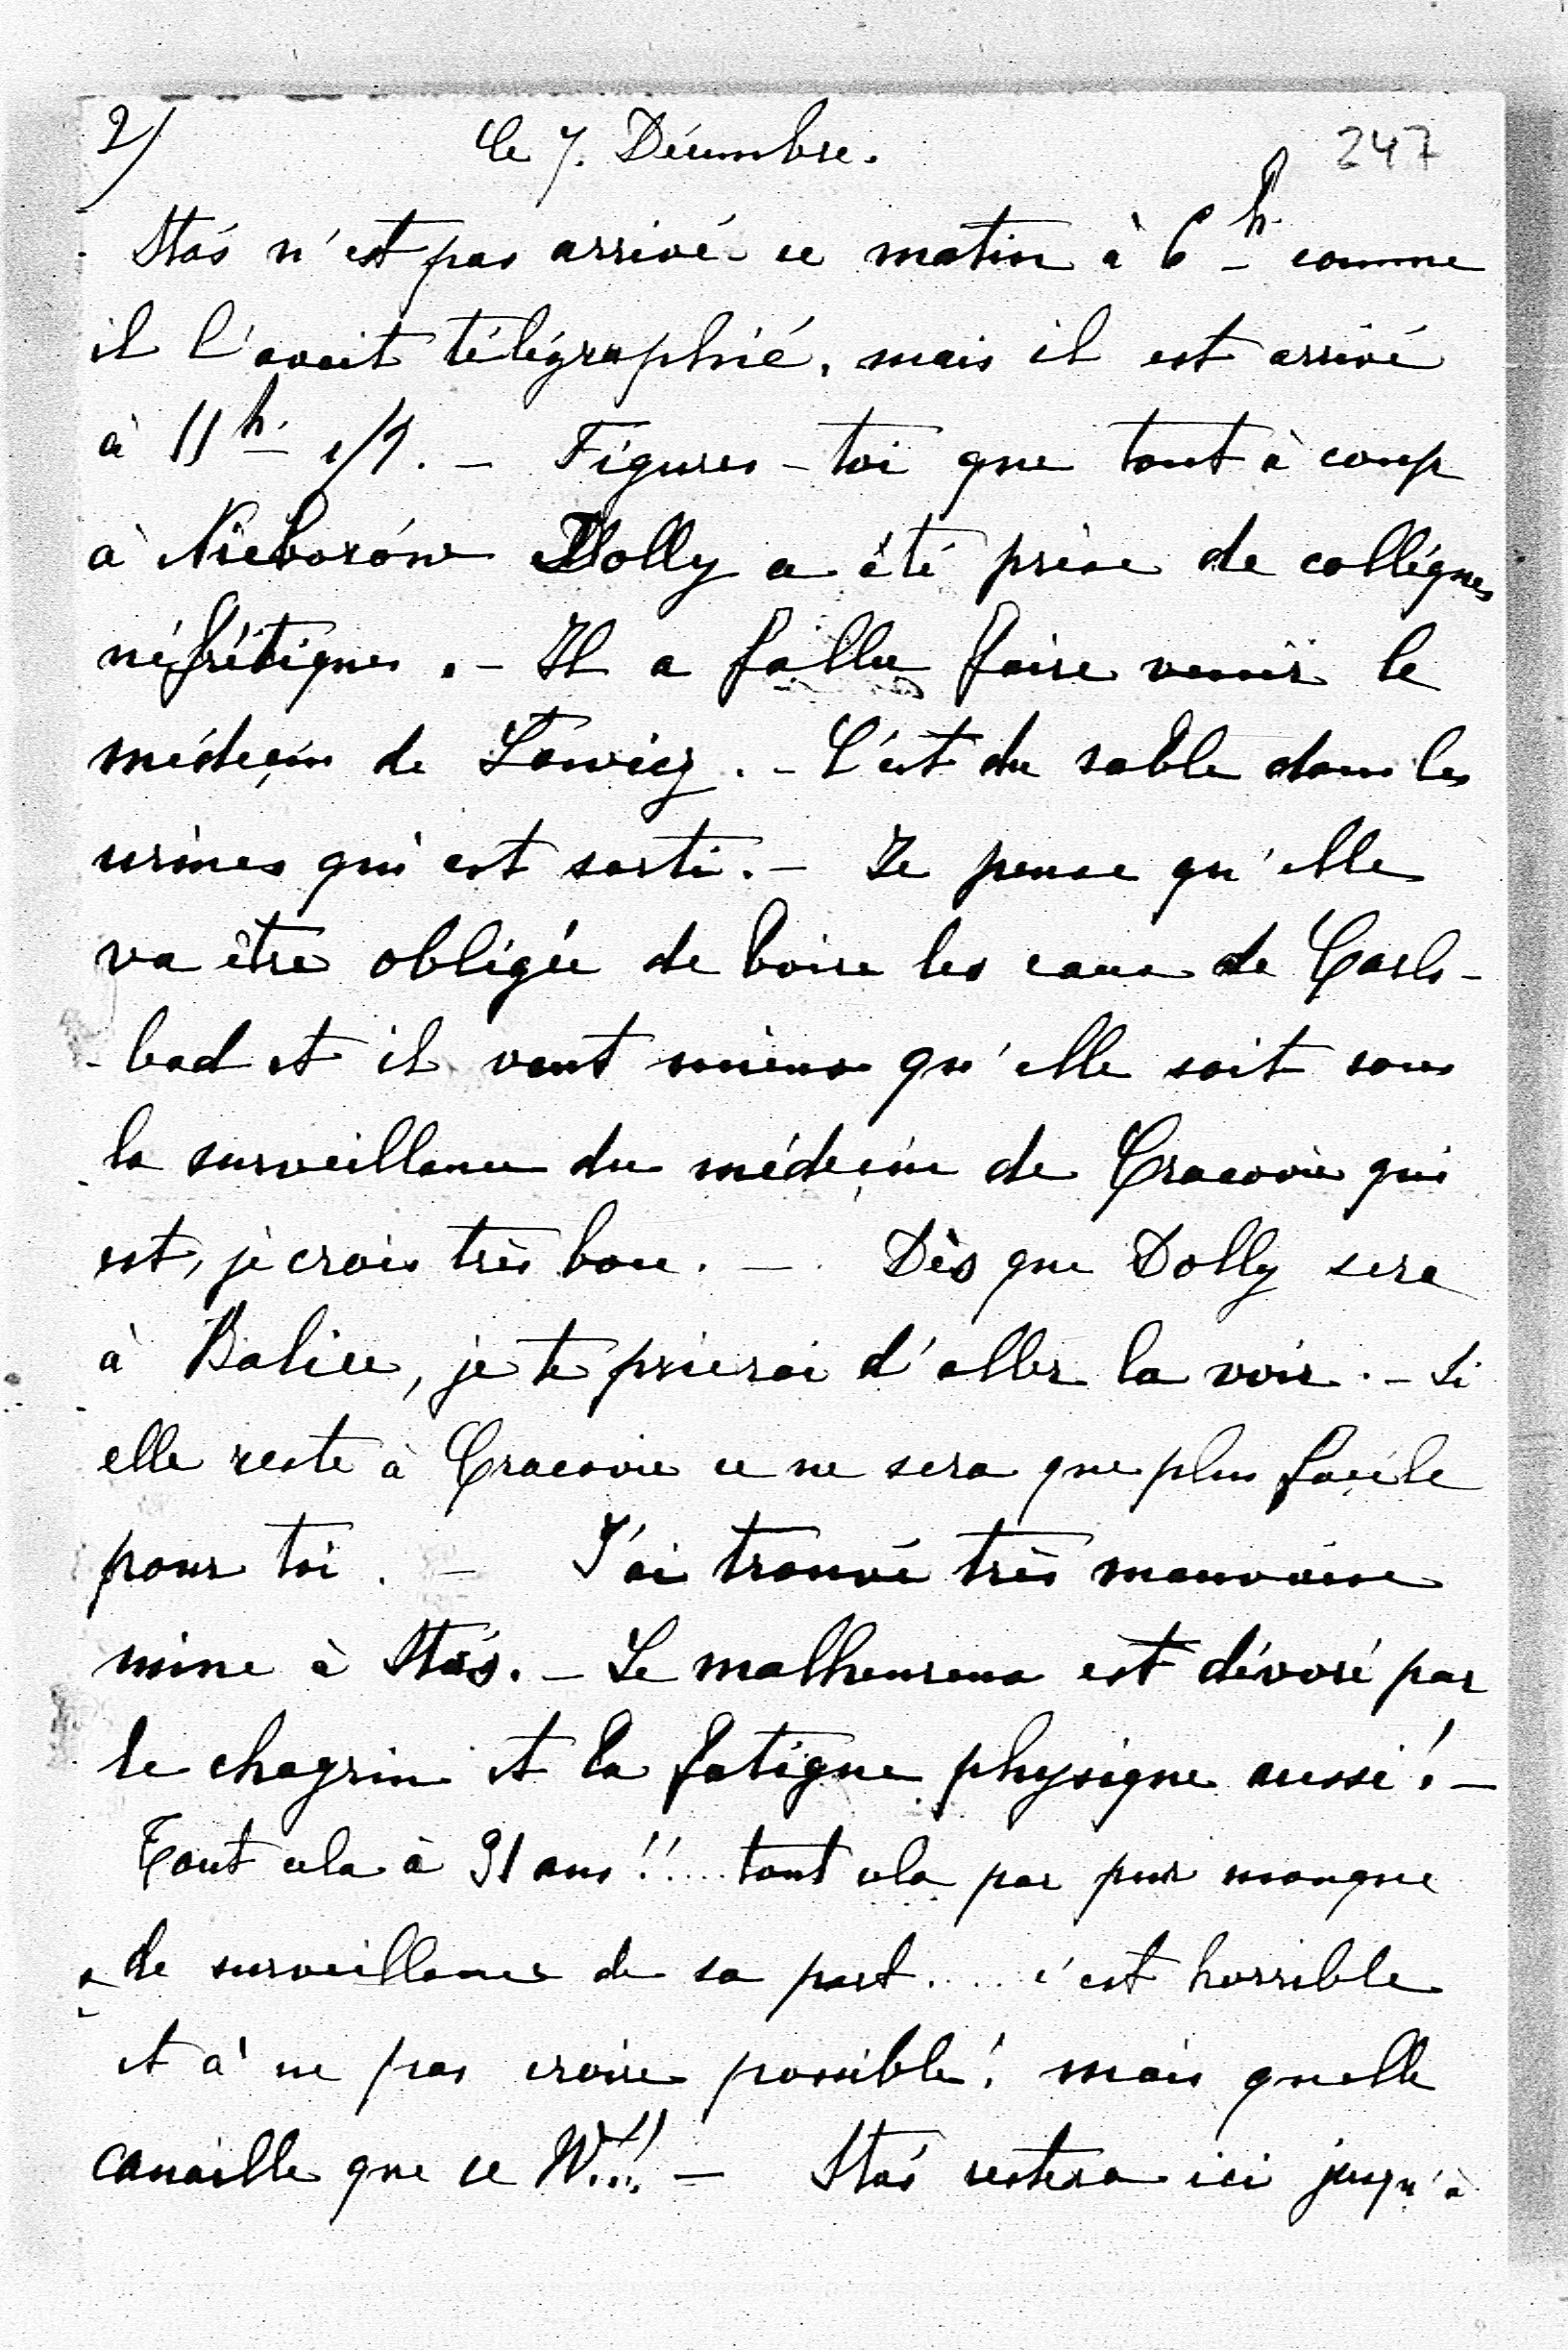 2/ Le 7. Décembre. 247
Staś n'est pas arrivé ce matin à 6h. comme
il l'avait télégraphié, mais il est arrivé
à 11h. 1/2. – Figures-toi que tout à coup
à Nieborów Dolly a été prise de colliques
néfrétiques. – Il a fallu faire venir le
médeçin de Lowicz. – C'est du sable dans les
urines qui est sorti. – Je pense qu'elle
va être obligée de boire les eaux de Carls-
-bad et il vaut mieux qu'elle soit sous
la surveillance du médeçin de Cracovie qui
est, je crois très bon. – Dès que Dolly sera
à Balice, je te prierai d'aller la voir. – Si
elle reste à Cracovie ce ne sera que plus façile
pour toi. – J'ai trouvé très mauvaise
mine à Staś. – Le malheureux est dévoré par
le chagrin et la fatigue physique aussi! –
Tout cela à 31 ans!!.... tout cela par pur manque
de surveillance de sa part..... c'est horrible
et à ne pas croire possible! mais quelle
canaille que ce W...!! – Staś restera ici jusqu'à